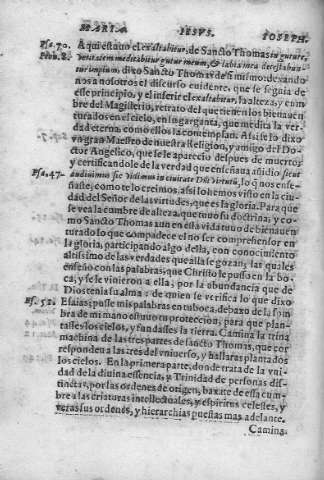 MARIA IESVS. IOSEPH.
Pss. 70. Aqui estauo el exaltabitur, de Sancto Thomas in guture,
Prou. 8. veritatem meditabitur gutur meum, & labia mea detestabun-
tur impium, dixo Sancto Thomas de si mismo: dexando
nos a nosotros el discurso euidente, que se seguia de
esse principio, y el inferir el exaltabitur, la alteza, y cum
bre del Magisterio, retrato del que tienen los bienauen
turados en el cielo, en la garganta, que medita la ver-
dad eterna, como ellos la contemplan. Assi se lo dixo
vn gran Maestro de nuestra Religion, y amigo del Do-
ctor Angelico, que se le aparecio despues de muerto
y certificandole de la verdad que enseñaua añidio sicut
Psa. 47. audiuimus sic vidimus in ciuitate Dñi virtutũ, lo q̃ nos ense-
ñaste, como te lo creimos, assi lo hemos visto en la ciu
dad del Señor de las virtudes, que es la gloria. Para que
se vea la cumbre de alteza, que tuuo su doctrina, y co-
mo Sancto Thomas aun en esta vida tuuo de bienauen
turado lo que compadece el no ser comprehensor en
la gloria, participando algo della, con conocimiento
altissimo de las verdades que alla se gozan; las quales
enseño con las palabras, que Christo le puso en la bo-
ca, y se le vinieron a ella, por la abundancia que de
Dios tenia su alma: de quien se verifica lo que dixo
Ps. 52. Esaias; puse mis palabras en tu boca, debaxo de la som
bra de mi mano estuuo tu proteccion; para que plan-
tasses los cielos, y fundasses la tierra. Camina la trina
machina de las tres partes de sancto Thomas, que cor
responden a las tres del vniuerso, y hallaras plantados
los cielos. En la primera parte, donde trata de la vni-
dad de la diuina essencia, y Trinidad de personas dis-
tinctas, por las ordenes de origen, baxate de essa cum-
bre a las criaturas intellectuales, y espiritus celestes, y
veras sus ordenes, y hierarchias puestas mas adelante.
Camina.